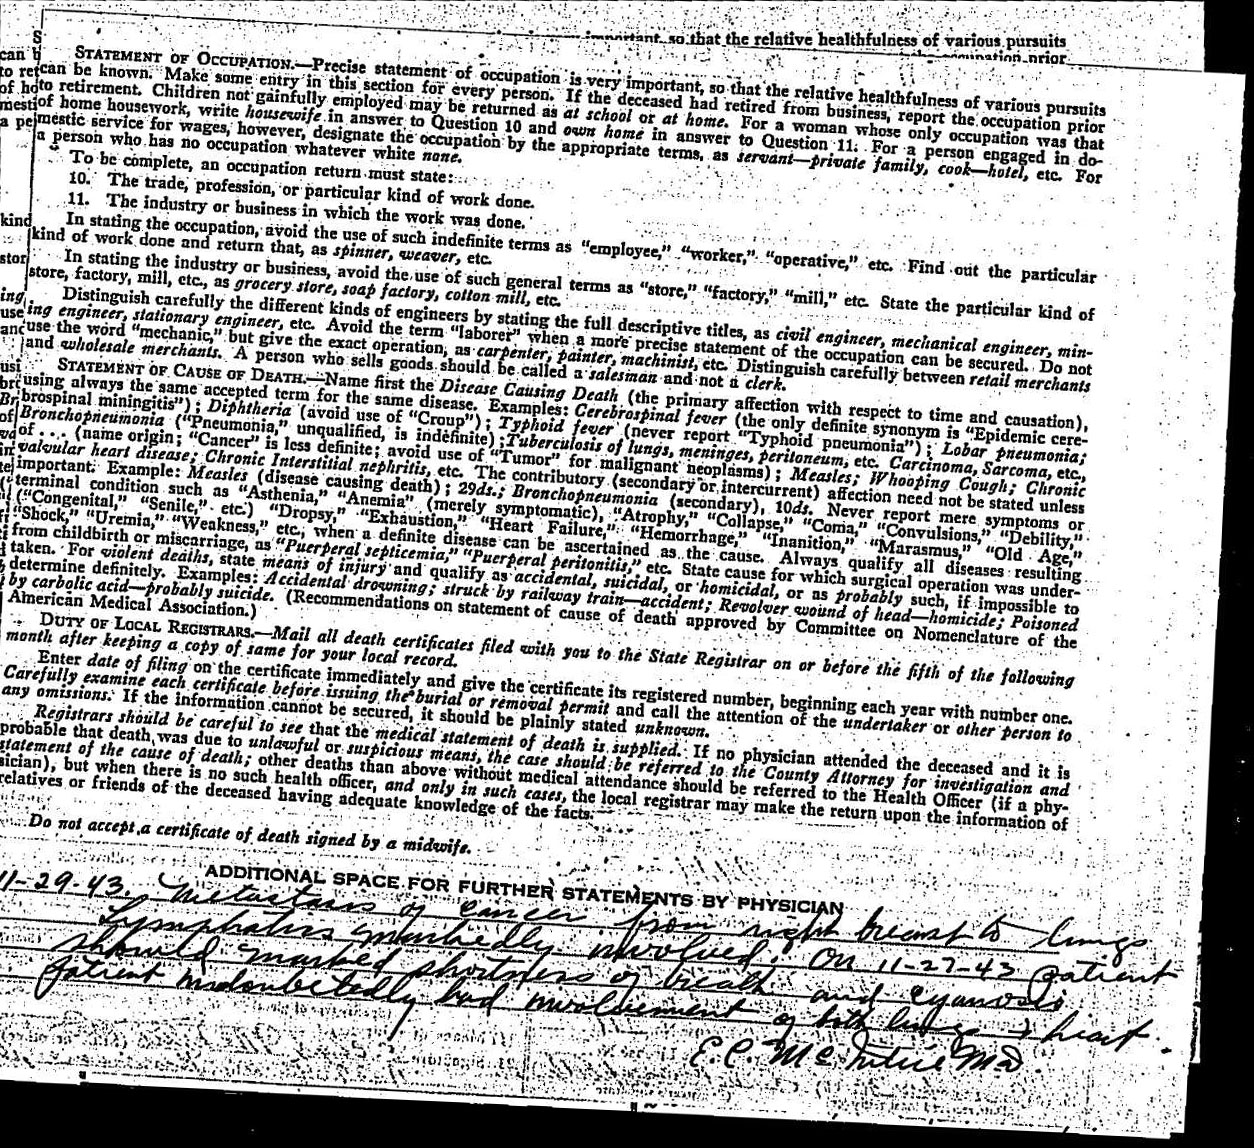 important, so that the relative healthfulness of various pursuits
STATEMENT OF OCCUPATION.—Precise statement of occupation is very important, so that the relative healthfulness of various pursuits
can be known. Make some entry in this section for every person. If the deceased had retired from business, report the occupation prior
to retirement. Children not gainfully employed may be returned as at school or at home. For a woman whose only occupation was that
of home housework, write housewife in answer to Question 10 and own home in answer to Question 11. For a person engaged in do-
mestic service for wages, however, designate the occupation by the appropriate terms, as servant—private family, cook—hotel, etc. For
a person who has no occupation whatever white none.
To be complete, an occupation return must state:
10. The trade, profession, or particular kind of work done.
11. The industry or business in which the work was done.
In stating the occupation, avoid the use of such indefinite terms as "employee," "worker," "operative," etc. Find out the particular
kind of work done and return that, as spinner, weaver, etc.
In stating the industry or business, avoid the use of such general terms as "store," "factory," "mill," etc. State the particular kind of
store, factory, mill, etc., as grocery store, soap factory, cotton mill, etc.
Distinguish carefully the different kinds of engineers by stating the full descriptive titles, as civil engineer, mechanical engineer, min-
ing engineer, stationary engineer, etc. Avoid the term "laborer" when a more precise statement of the occupation can be secured. Do not
use the word "mechanic," but give the exact operation, as carpenter, painter, machinist, etc. Distinguish carefully between retail merchants
and wholesale merchants. A person who sells goods should be called a salesman and not a clerk.
STATEMENT OF CAUSE OF DEATH.—Name first the Disease Causing Death (the primary affection with respect to time and causation),
using always the same accepted term for the same disease. Examples: Cerebrospinal fever (the only definite synonym is "Epidemic cere-
brospinal miningitis"); Diphtheria (avoid use of "Croup"); Typhoid fever (never report "Typhoid pneumonia"); Lobar pneumonia;
Bronchopneumonia ("Pneumonia," unqualified, is indefinite); Tuberculosis of lungs, meninges, peritoneum, etc. Carcinoma, Sarcoma, etc.,
of . . . (name origin; "Cancer" is less definite; avoid use of "Tumor" for malignant neoplasms); Measles; Whooping Cough; Chronic
valvular heart disease; Chronic Interstitial nephritis, etc. The contributory (secondary or intercurrent) affection need not be stated unless
important. Example: Measles (disease causing death); 29ds.; Bronchopneumonia (secondary), 10ds. Never report mere symptoms or
terminal condition such as "Asthenia," "Anemia" (merely symptomatic), "Atrophy," "Collapse," "Coma," "Convulsions," "Debility,"
("Congenital," "Senile," etc.) "Dropsy," "Exhaustion," "Heart Failure," "Hemorrhage," "Inanition," "Marasmus," "Old Age,"
"Shock," "Uremia," "Weakness," etc., when a definite disease can be ascertained as the cause. Always qualify all diseases resulting
from childbirth or miscarriage, as "Puerperal septicemia," "Puerperal peritonitis," etc. State cause for which surgical operation was under-
taken. For violent deaths, state means of injury and qualify as accidental, suicidal, or homicidal, or as probably such, if impossible to
determine definitely. Examples: Accidental drowning; struck by railway train—accident; Revolver wound of head—homicide; Poisoned
by carbolic acid—probably suicide. (Recommendations on statement of cause of death approved by Committee on Nomenclature of the
American Medical Association.)
DUTY OF LOCAL REGISTRARS.—Mail all death certificates filed with you to the State Registrar on or before the fifth of the following
month after keeping a copy of same for your local record.
Enter date of filing on the certificate immediately and give the certificate its registered number, beginning each year with number one.
Carefully examine each certificate before issuing the burial or removal permit and call the attention of the undertaker or other person to
any omissions. If the information cannot be secured, it should be plainly stated unknown.
Registrars should be careful to see that the medical statement of death is supplied. If no physician attended the deceased and it is
probable that death was due to unlawful or suspicious means, the case should be referred to the County Attorney for investigation and
statement of the cause of death; other deaths than above without medical attendance should be referred to the Health Officer (if a phy-
sician), but when there is no such health officer, and only in such cases, the local registrar may make the return upon the information of
relatives or friends of the deceased having adequate knowledge of the facts.
Do not accept a certificate of death signed by a midwife.
ADDITIONAL SPACE FOR FURTHER STATEMENTS BY PHYSICIAN
11-29-43. Metastasis of cancer from right breast to lungs
Lymphatics markedly involved. On 11-27-43 patient
showed marked shortness of breath and cyanosis
Patient undoubtedly had involvement of both lungs & heart.
E. C. McIntire M.D.